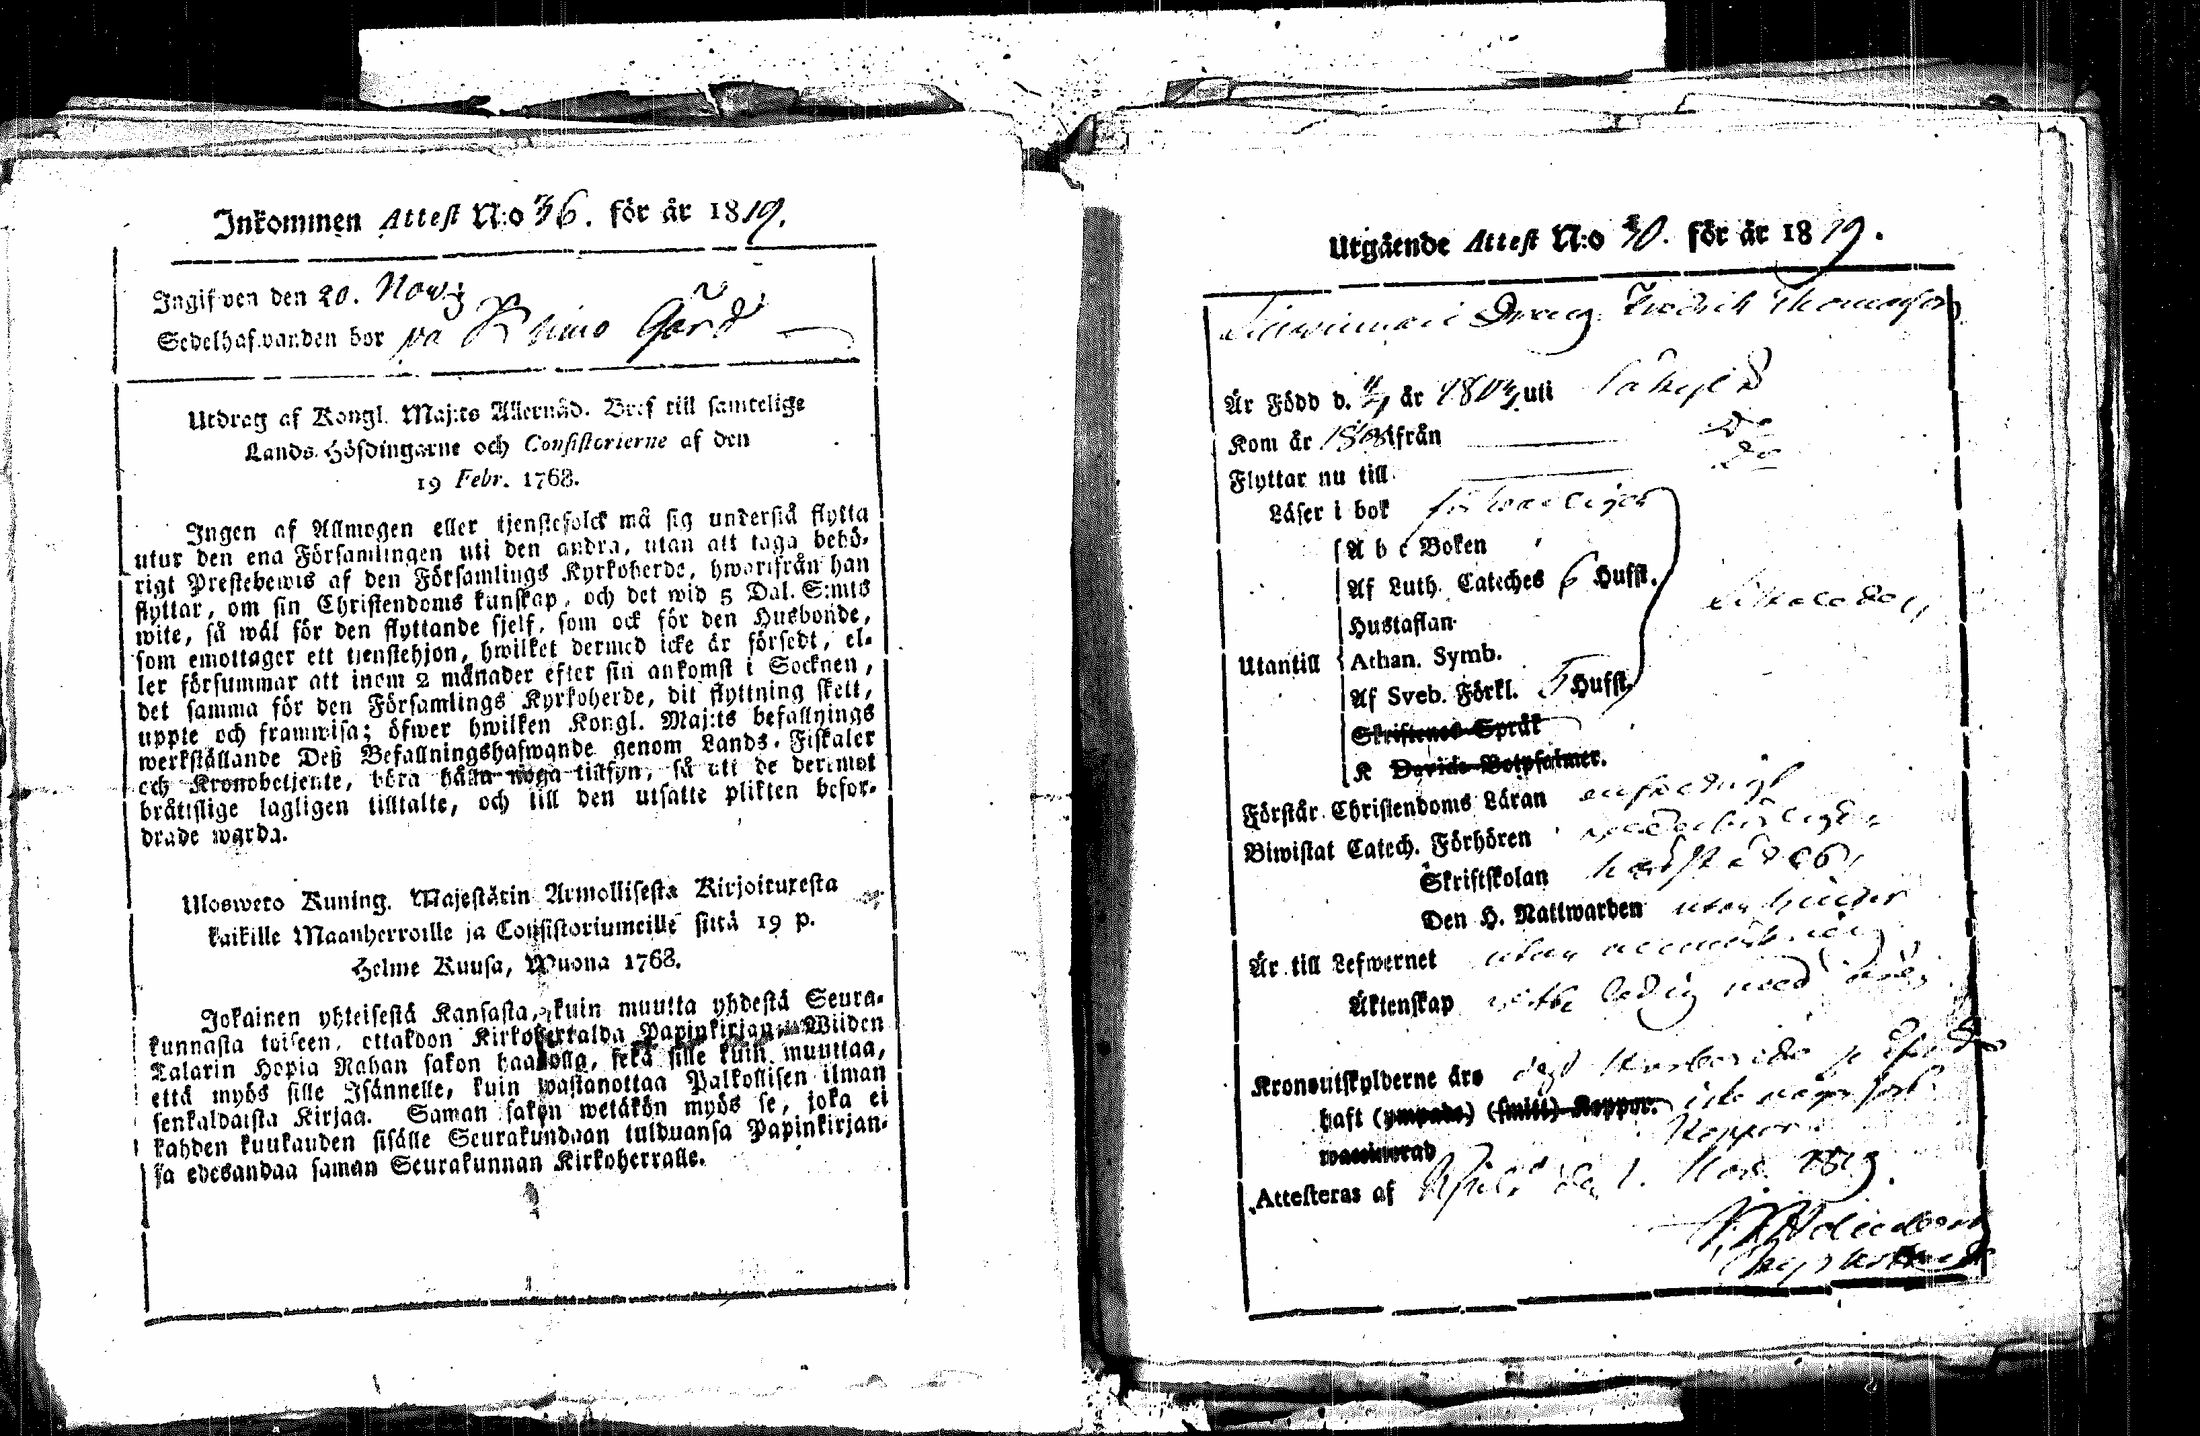 Inkommen Attest N:o 36. för år 1819.
Ingifven den 20. Nov:
Sedelhafvanden bor på Kjimo Gård
Utdrag af Kongl. Maj:ts Allernåd. Bref till samtelige
Lands-Höfdingarne och Consistorierne af den
19 Febr. 1768.
Ingen af Allmogen eller tjenstefolck må sig understå flytta
utur den ena Församlingen uti den andra, utan att taga behö-
rigt Prestebewis af den Församlings Kyrkoherde, hwarifrån han
flyttar, om sin Christendoms kunskap, och det wid 5 Dal. S:mts
wite, så wäl för den flyttande sjelf, som ock för den Husbonde,
som emottager ett tjenstehjon, hwilket dermed icke är försedt, el-
ler försummar att inom 2 månader efter sin ankomst i Socknen,
det samma för den Församlings Kyrkoherde, dit flyttning skett,
uppte och framwisa; öfwer hwilken Kongl. Maj:ts befallnings
werkställande Deß Befallningshafwande genom Lands-Fiskaler
och Kronobetjente, böra hålla noga tillsyn, så att de deremot
bråttslige lagligen tilltalte, och till den utsatte plikten befor-
drade warda.
Ulosweto Kuning. Majestätin Armollisesta Kirjoituxesta
kaikille Maanherroille ja Consistoriumeille siitä 19 p.
Helme Kuusa, Wuona 1768.
Jokainen yhteisestä Kansasta, kuin muutta yhdestä Seura-
kunnasta toiseen, ottakoon Kirkoherralda Papinkirjan Wiiden
Talarin Hopia Rahan sakon haastolla, sekä sille kuin muuttaa,
että myös sille Isännelle, kuin wastanottaa Palkollisen ilman
senkaldaista Kirjaa. Saman sakon wetäkön myös se, joka ei
kahden kuukauden sisälle Seurakundaan tulduansa Papinkirjan-
sa edesandaa saman Seurakunnan Kirkoherralle.
Utgående Attest N:o 30. för år 1819.
Dräng Fredrik Thomasson
Är Född d. år 1803 uti Säkylä
Kom år ifrån Do
Flyttar nu till Do
Läser i bok försvarligen
A b c Boken
Af Luth. Cateches 6 Hufst.
Hustaflan
Utantill Athan. Symb.
Af Sveb. Förkl. 5 Hufst.
Skriftenes Språk
K Davids Botpsalmer.
Förstår Christendoms Läran enfaldigt
Biwistat Catech. Förhören
Skriftskolan
Den H. Nattwarden utan hinder
Är till Lefwernet utan anmärkning
Äktenskap ledig med
Kronoutskylderne äro
haft (ympade) (smitt) Koppor. icke
Koppor
waccinerad
Attesteras af den 1. Nov. 1819.